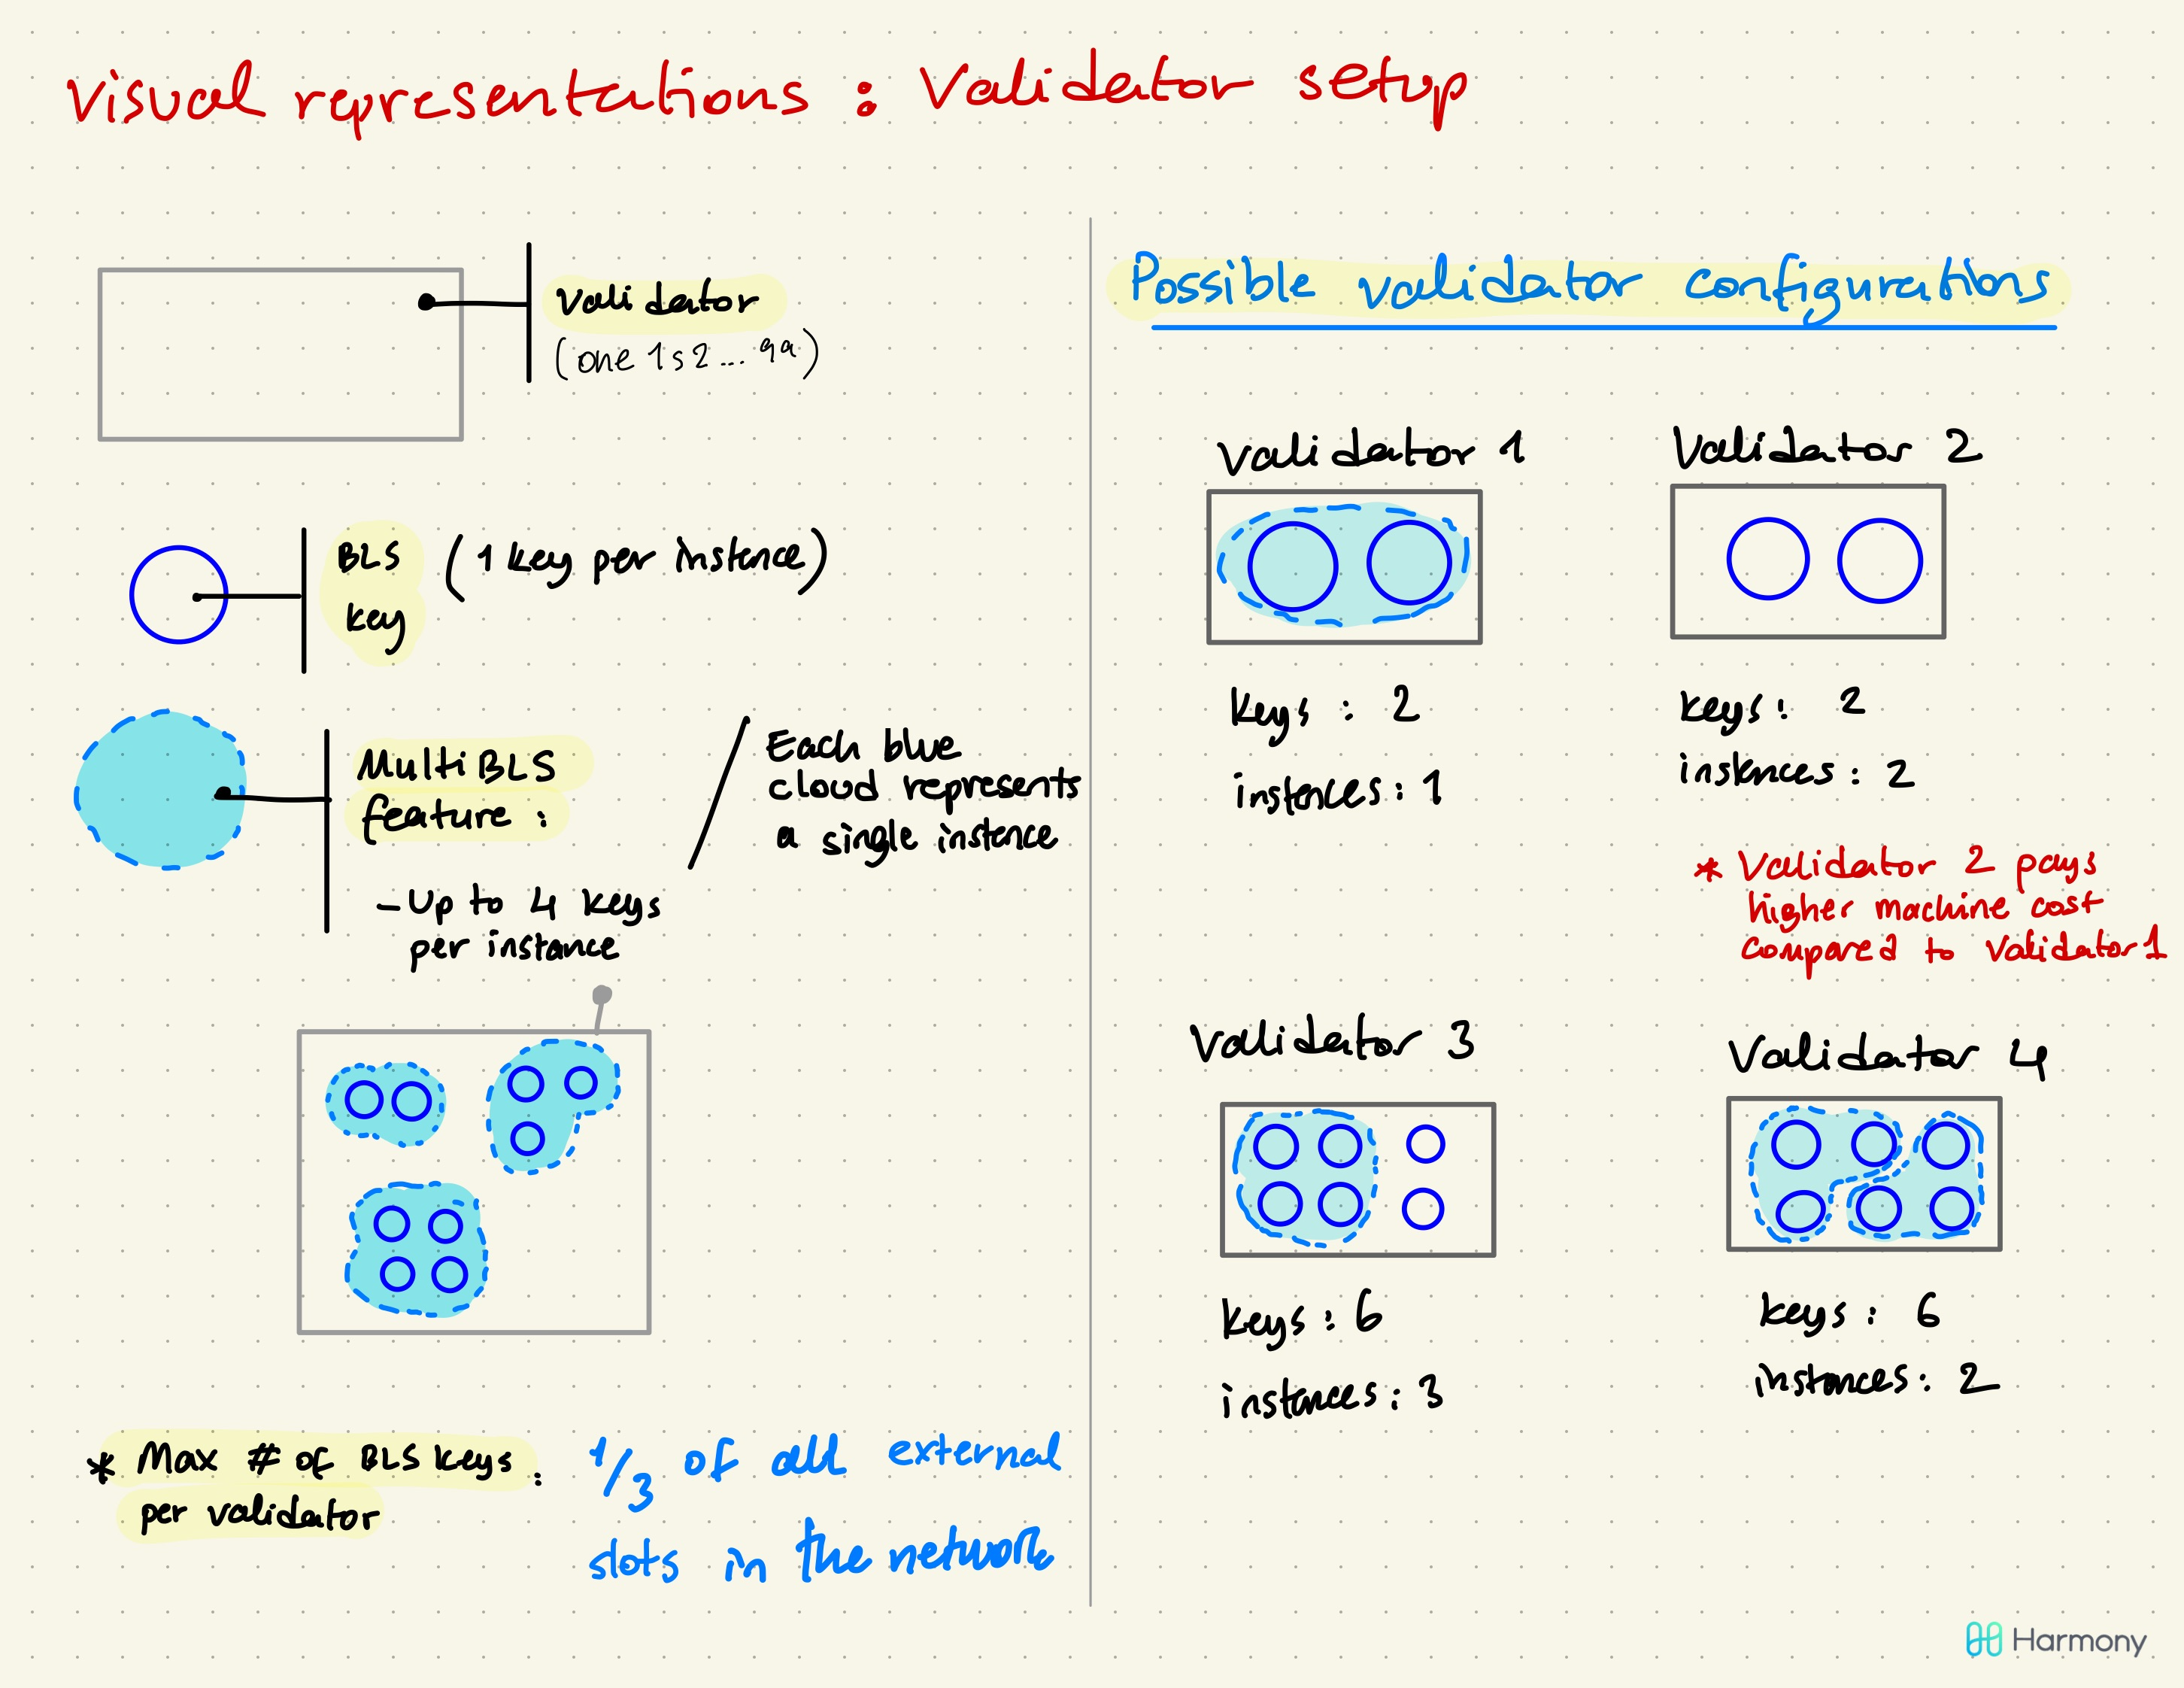 Visual representations : Validator setup
Validator
(one1s2...99)
BLS
key
(1 key per instance)
MultiBLS
feature :
- Up to 4 keys
per instance
Each blue
cloud represents
a single instance
* Max # of BLS keys :
per validator
1/3 of all external
slots in the network
Possible validator configurations
Validator 1
keys : 2
instances : 1
Validator 2
keys : 2
instances : 2
* Validator 2 pays
higher machine cost
compared to Validator 1
Validator 3
keys : 6
instances : 3
Validator 4
keys : 6
instances : 2
Harmony